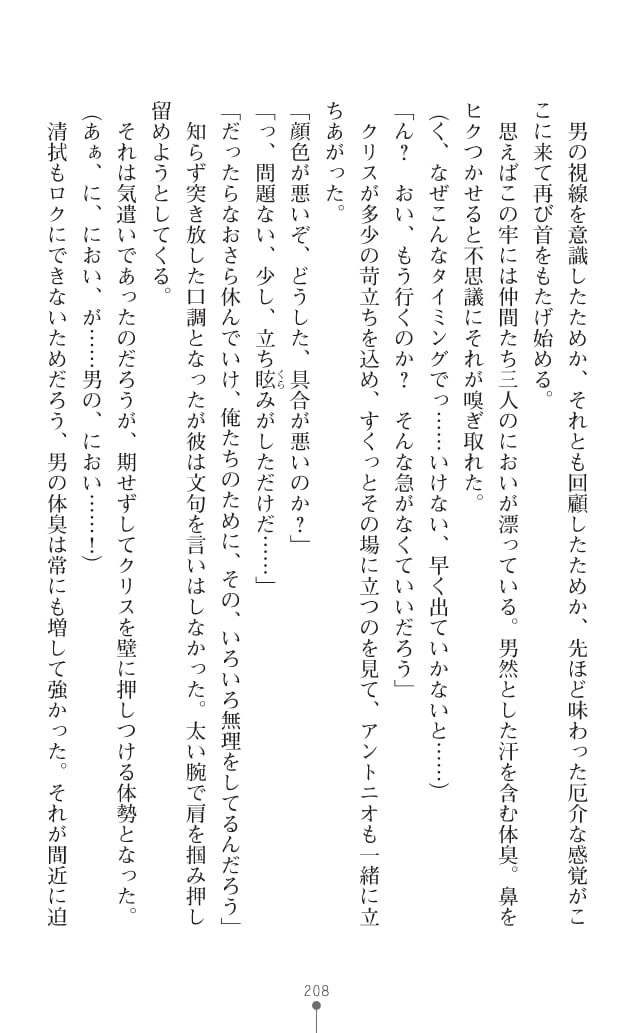 男の視線を意識したためか、それとも回顧したためか、先ほど味わった厄介な感覚がこ
こに来て再び首をもたげ始める。
思えばこの牢には仲間たち三人のにおいが漂っている。男然とした汗を含む体臭。鼻を
ヒクつかせると不思議にそれが嗅ぎ取れた。
（く、なぜこんなタイミングでっ……いけない、早く出ていかないと……）
「ん？　おい、もう行くのか？　そんな急がなくていいだろう」
クリスが多少の苛立ちを込め、すくっとその場に立つのを見て、アントニオも一緒に立
ちあがった。
「顔色が悪いぞ、どうした、具合が悪いのか？」
「っ、問題ない、少し、立ち眩くらみがしただけだ……」
「だったらなおさら休んでいけ、俺たちのために、その、いろいろ無理をしてるんだろう」
知らず突き放した口調となったが彼は文句を言いはしなかった。太い腕で肩を掴み押し
留めようとしてくる。
それは気遣いであったのだろうが、期せずしてクリスを壁に押しつける体勢となった。
（あぁ、に、におい、が……男の、におい……！）
清拭もロクにできないためだろう、男の体臭は常にも増して強かった。それが間近に迫
208